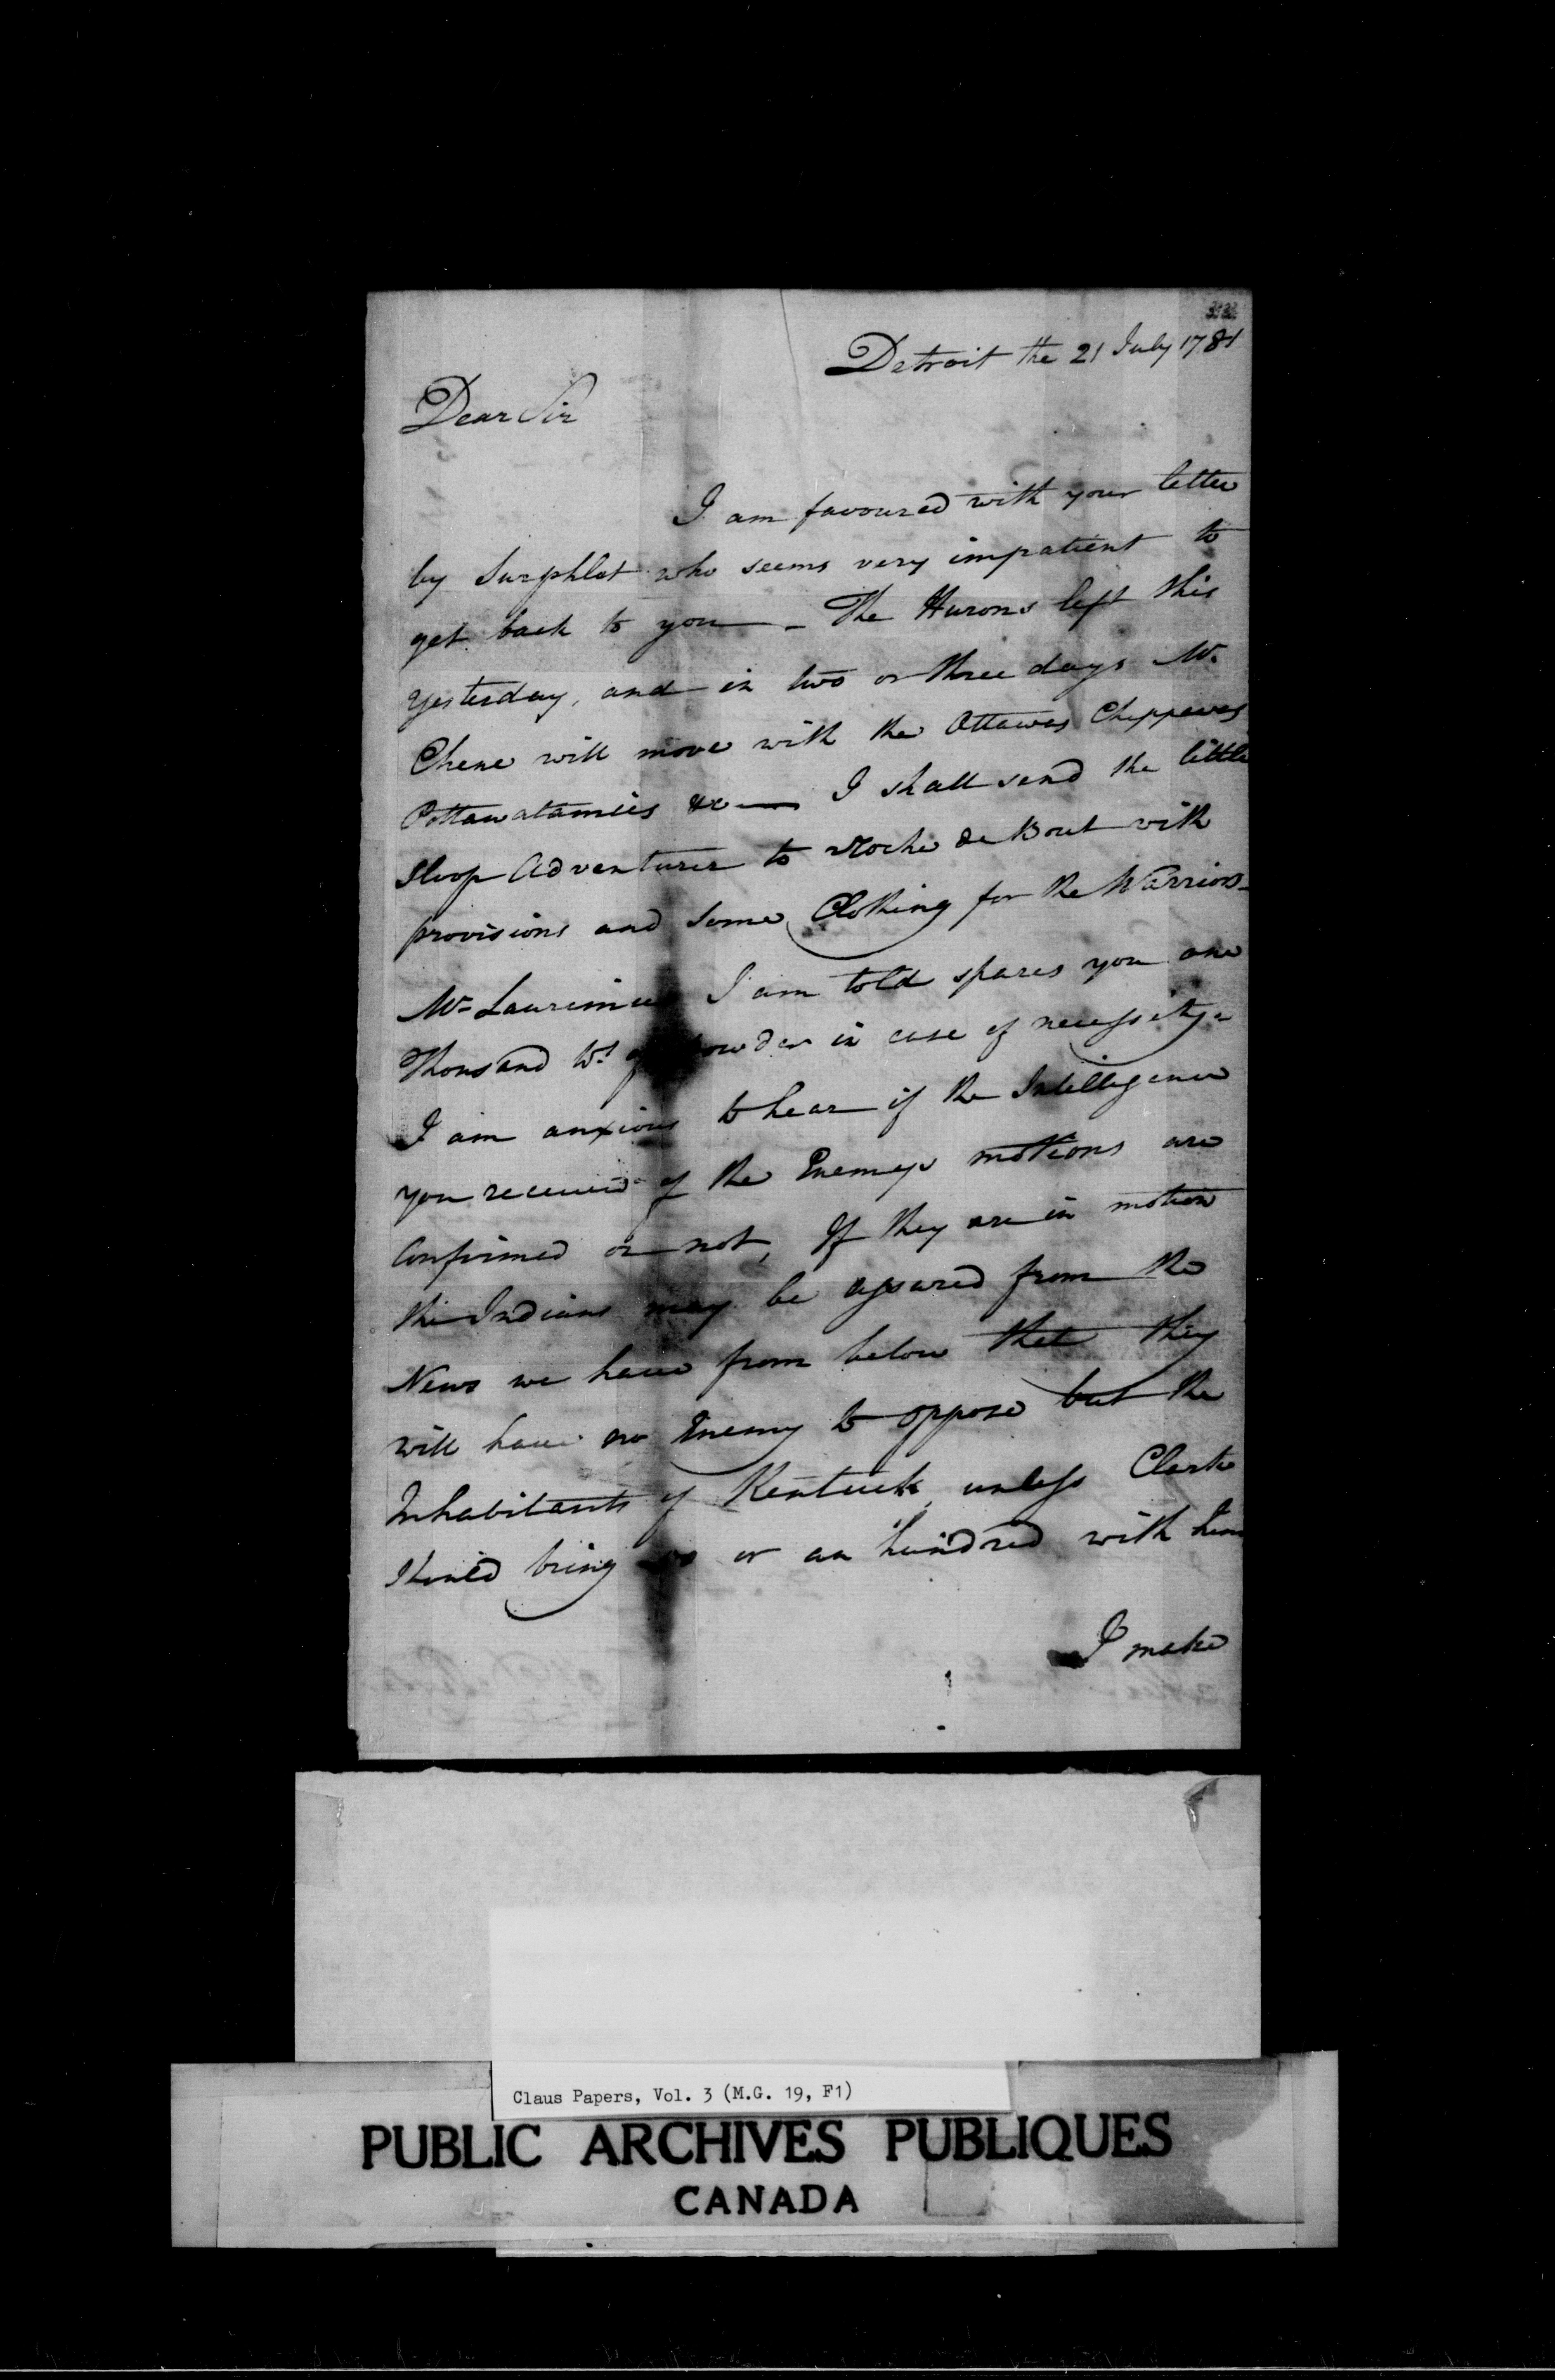 Detroit the 21 July 1781
Dear Sir
I am favoured with your letter
by Surphlet who seems very impatient to
get back to you - The Hurons left this
yesterday, and in two or three days Mr.
Chene will move with the Ottawas Chippewas
Pottawatamies &c — I shall send the little
Sloop Adventurer to Roche de Bout with
provisions and some Clothing for the Warriors -
Mr. Laurimier I am told spares you one
Thousand Wt. of powder in case of necessity -
I am anxious to hear if the Intelligence
you received of the Enemys motions are
Confirmed or not, If they are in motion
the Indians may be assured from the
News we have from below that they
will have no Enemy to oppose but the
Inhabitants of Kentuck, unless Clark
should bring or an hundred with him
I make
Claus Papers, Vol. 3 (M.G. 19, F1)
PUBLIC ARCHIVES PUBLIQUES
CANADA